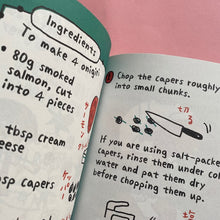 Ingredients
To make 4 onigiri
• 80g smoked
salmon, cut
into 4 pieces
tbsp cream
cheese
tbsp capers
Chop the capers roughly
into small chunks.
切
る
If you are using salt-packed
capers, rinse them under cold
water and pat them dry
before chopping them up.